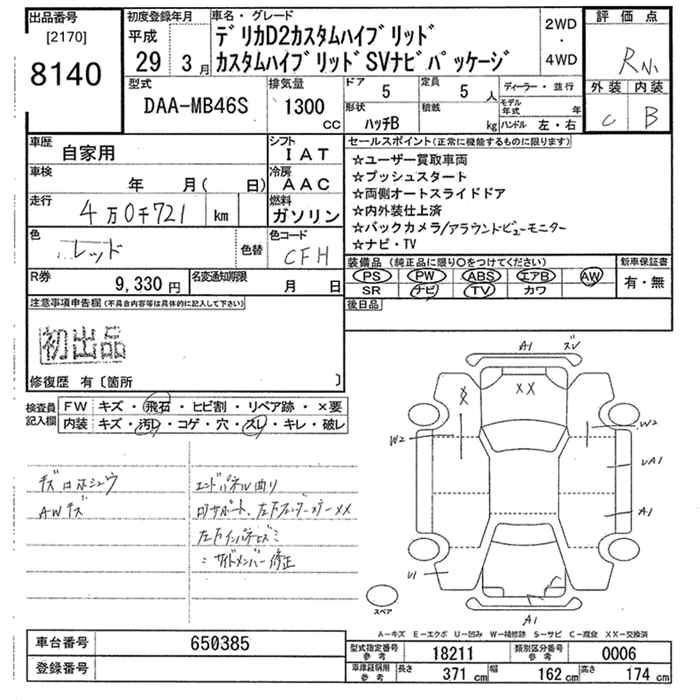 出品番号
[2170]
8140
初度登録年月
平成
29 3月
車名・グレード
デリカD2カスタムハイブリッド
カスタムハイブリッドSVナビパッケージ
2WD
・
4WD
評価点
外装 内装
C B
型式
DAA-MB46S
排気量
1300
CC
ドア
5
定員
5 人
形状
ハッチB
積載
kg
ディーラー・並行
モデル年式 年
ハンドル 左・右
車歴
自家用
シフト
IAT
車検
年 月( 日)
冷房
AAC
走行
4万0千721 km
燃料
ガソリン
色
レッド
色替
色コード
CFH
R券
9,330円
名変通知期限
月 日
セールスポイント(正常に機能するものに限ります)
☆ユーザー買取車両
☆プッシュスタート
☆両側オートスライドドア
☆内外装仕上済
☆バックカメラ/アラウンドビューモニター
☆ナビ・TV
装備品(純正品に限り○をつけてください)
PS PW ABS エアB AW
SR ナビ TV カワ
新車保証書
有・無
後日品
注意事項申告欄(不具合内容等は具体的に記入して下さい)
初出品
修復歴 有〔箇所 〕
検査員
記入欄
FW キズ・飛石・ヒビ割・リペア跡・×要
内装 キズ・汚レ・コゲ・穴・スレ・キレ・破レ
キズロホシュウ
AWキズ
エンドパネル曲り
サイドメンバー修正
A1
XX
W2
W2
UA1
A1
U1
A1
スペア
A-キズ E-エクボ U-凹み W-補修跡 S-サビ C-腐食 XX-交換済
車台番号
650385
登録番号
型式指定番号
参考
18211
類別区分番号
参考
0006
車庫証明用
参考
長さ
371 cm
幅
162 cm
高さ
174 cm